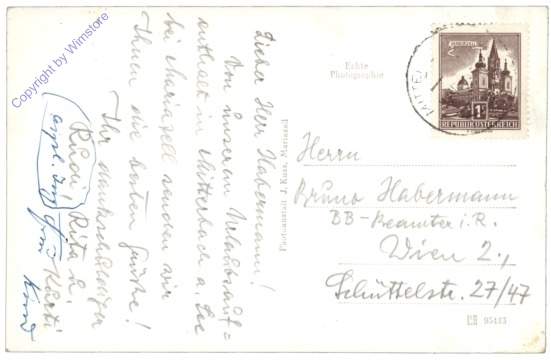 Copyright by Wimstore
Lieber Herr Habermann!
Von unserem Urlaubsauf=
enthalt in Mitterbach a. See
bei Mariazell senden wir
Ihnen die besten Grüße!
Ihr dankschuldiger
Rudi, Rita u.
Kurti
Echte
Photographie
Photoanstalt J. Kuss, Mariazell
MARIAZELL
1S
REPUBLIK ÖSTERREICH
MITTE
Herrn
Bruno Habermann
BB-Beamter i.R.
Wien 2.,
Schüttelstr. 27/47
95443